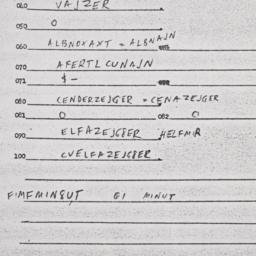 040 VAJZER
050 0
060 ALBNOXAXT - ALBNAJN
070 AFERTLCUNAJN
071 $ -
080 CENDERZEJGER - CENAZEJGER
081 0 082 0
090 ELFAZEJGBER HELFMIR
100 CVELFAZEJGBER
FIMFMINGUT GI MINUT